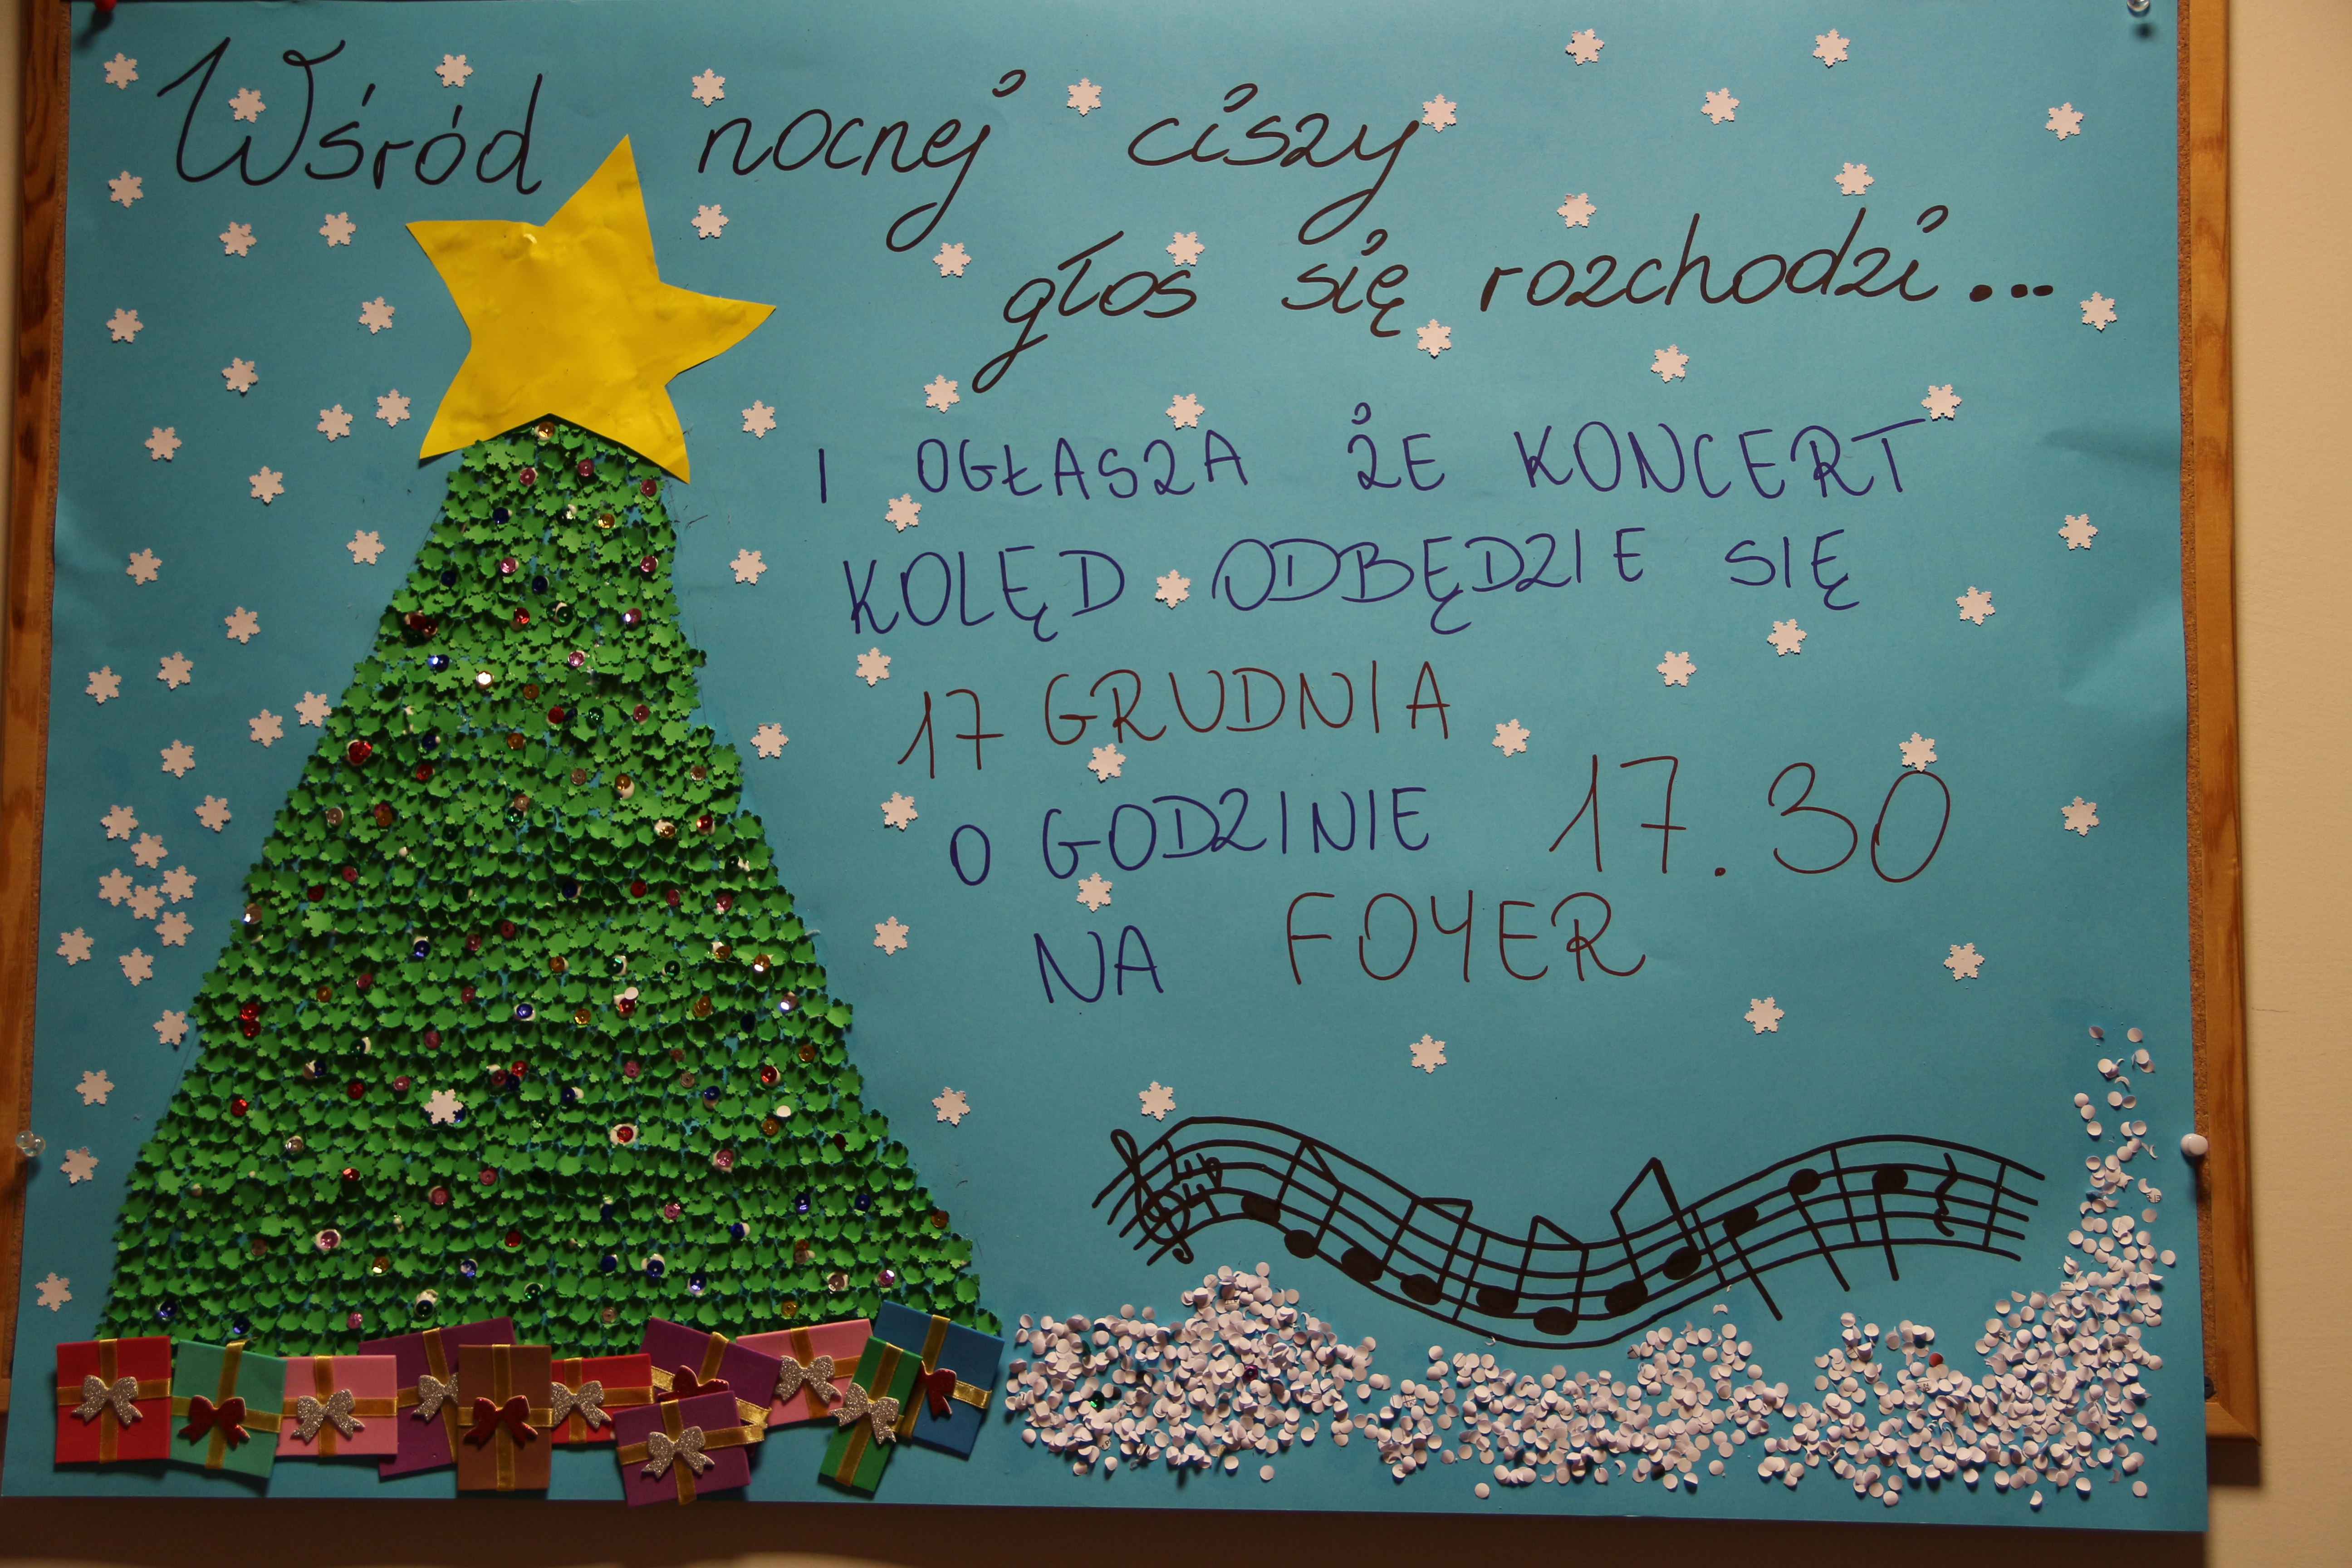 Wśród nocnej ciszy
głos się rozchodzi...
I OGŁASZA ŻE KONCERT
KOLĘD ODBĘDZIE SIĘ
17 GRUDNIA
O GODZINIE 17.30
NA FOYER